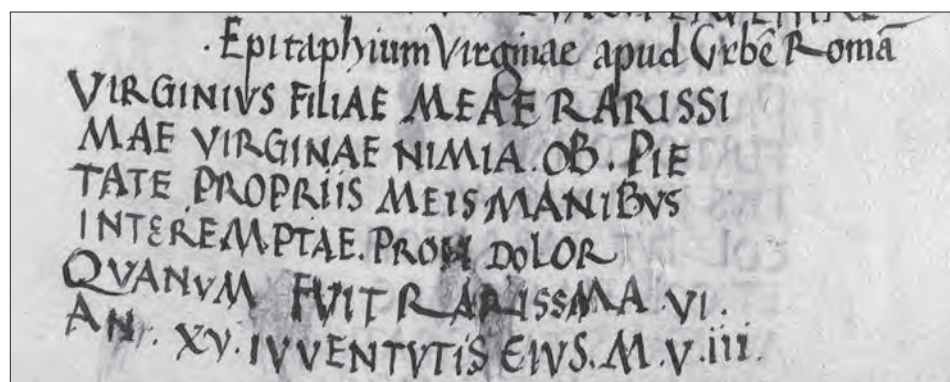 .Epitaphium Virginiae apud Urbē Romā
VIRGINIVS FILIAE MEAE RARISSI
MAE VIRGINAE NIMIA.OB.PIE
TATE PROPRIIS MEIS MANIBVS
INTEREMPTAE.PROH DOLOR
QVANVM FVIT RARISSMA VI.
AN.XV.IVVENTVTIS EIVS.M.V.III.